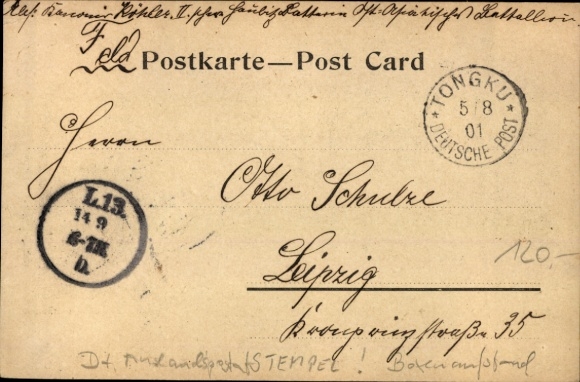 Abs: Kanonier Köhler II. schw. Haubitz Batterie Ost-Asiatisches Battallion
Feld Postkarte—Post Card
* TONGKU *
5/8
01
DEUTSCHE POST
Herrn
L.13.
14 9
6-7N
b.
Otto Schulze
120.-
Leipzig
Kronprinzstraße 35
STEMPEL ! Boxeraufstand